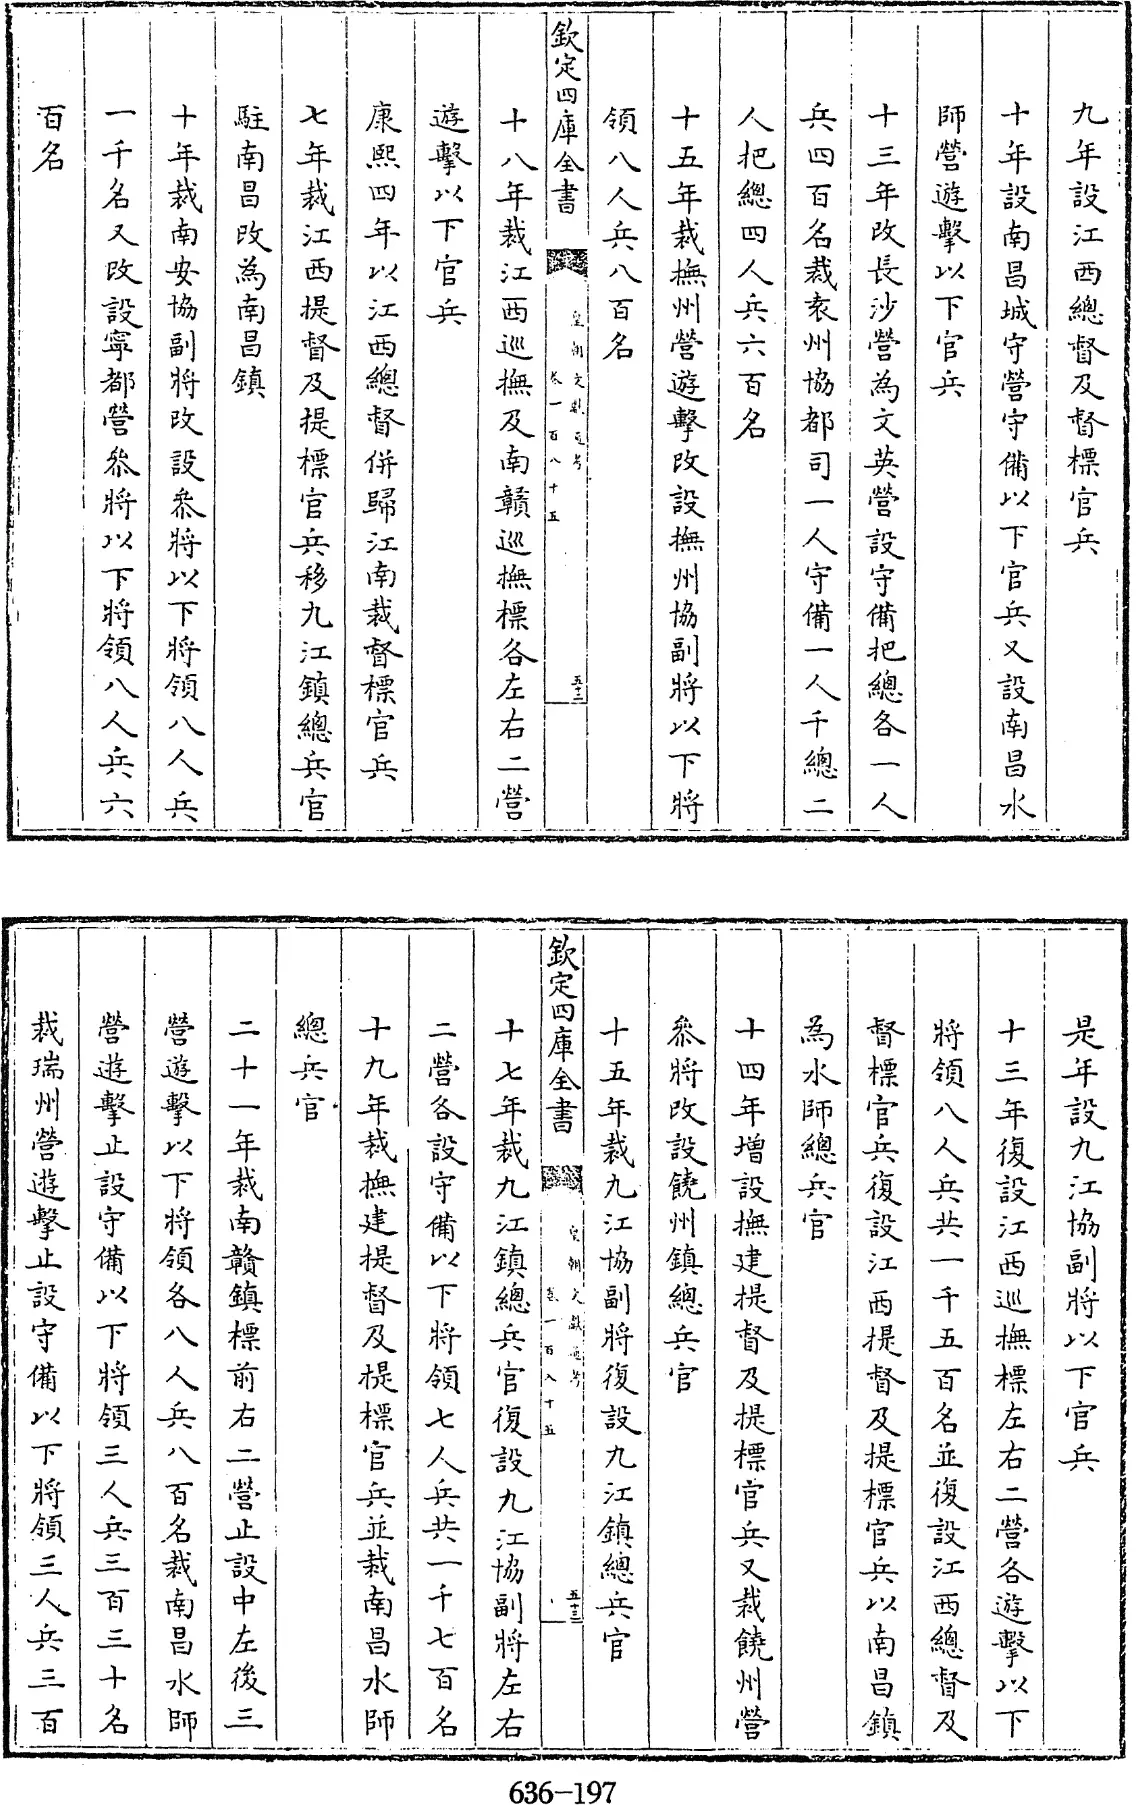 九年設江西總督及督標官兵
十年設南昌城守營守備以下官兵又設南昌水
師營遊擊以下官兵
十三年改長沙營為文英營設守備把總各一人
兵四百名裁袁州協都司一人守備一人千總二
人把總四人兵六百名
十五年裁撫州營遊擊改設撫州協副將以下將
領八人兵八百名
欽定四庫全書
皇朝文獻通考
卷一百八十五
五十三
十八年裁江西巡撫及南贛巡撫標各左右二營
遊擊以下官兵
康熙四年以江西總督併歸江南裁督標官兵
七年裁江西提督及提標官兵移九江鎮總兵官
駐南昌改為南昌鎮
十年裁南安協副將改設叅將以下將領八人兵
一千名又改設寧都營叅將以下將領八人兵六
百名
是年設九江協副將以下官兵
十三年復設江西巡撫標左右二營各遊擊以下
將領八人兵共一千五百名並復設江西總督及
督標官兵復設江西提督及提標官兵以南昌鎮
為水師總兵官
十四年增設撫建提督及提標官兵又裁饒州營
叅將改設饒州鎮總兵官
十五年裁九江協副將復設九江鎮總兵官
欽定四庫全書
皇朝文獻通考
卷一百八十五
五十三
十七年裁九江鎮總兵官復設九江協副將左右
二營各設守備以下將領七人兵共一千七百名
十九年裁撫建提督及提標官兵並裁南昌水師
總兵官
二十一年裁南贛鎮標前右二營止設中左後三
營遊擊以下將領各八人兵八百名裁南昌水師
營遊擊止設守備以下將領三人兵三百三十名
裁瑞州營遊擊止設守備以下將領三人兵三百
636-197